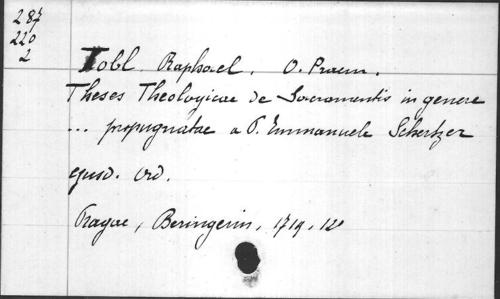 287
220
2
Tobl Raphael. O. Praem.
Theses Theologicae de Sacramentis in genere
... propugnatae a P. Emmanuele Schertzer
ejusd. Ord.
Pragae, Beringerin, 1719. 12°